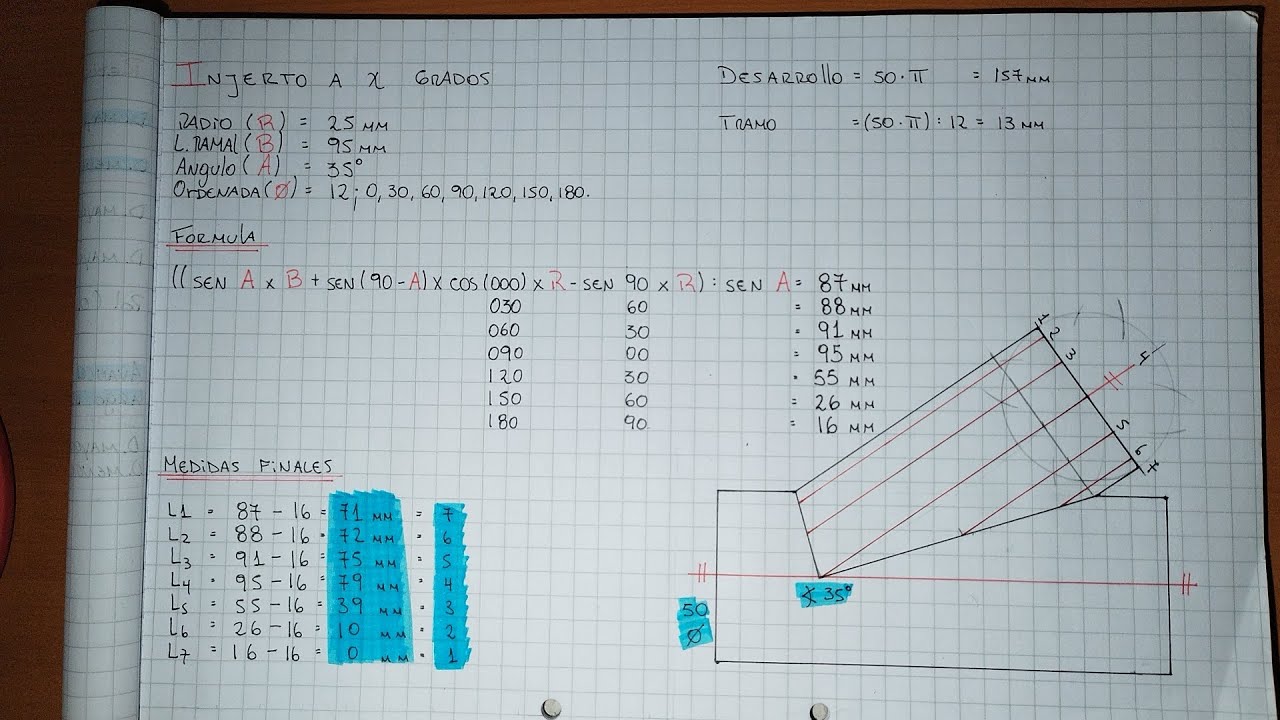 INJERTO A X GRADOS
DESARROLLO = 50·π = 157 MM
TRAMO = (50·π) : 12 = 13 MM
RADIO (R) = 25 MM
L. RAMAL (B) = 95 MM
ANGULO (A) = 35°
ORDENADA (Ø) = 12; 0, 30, 60, 90, 120, 150, 180.
FORMULA
((SEN A x B + SEN (90 - A) x COS (000) x R - SEN 90 x R) : SEN A = 87 MM
030 60 = 88 MM
060 30 = 91 MM
090 00 = 95 MM
120 30 = 55 MM
150 60 = 26 MM
180 90 = 16 MM
MEDIDAS FINALES
L1 = 87 - 16 = 71 MM = 7
L2 = 88 - 16 = 72 MM = 6
L3 = 91 - 16 = 75 MM = 5
L4 = 95 - 16 = 79 MM = 4
L5 = 55 - 16 = 39 MM = 3
L6 = 26 - 16 = 10 MM = 2
L7 = 16 - 16 = 0 MM = 1
1
2
3
4
5
6
7
∢ 35°
50
Ø